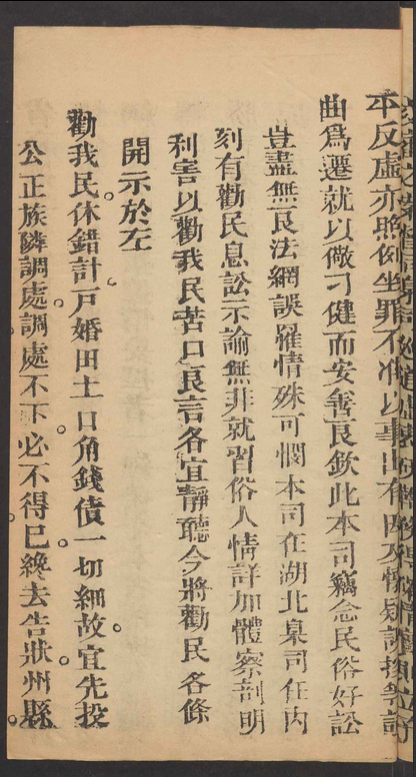 平反虛亦照例坐罪不准以事出有因及懷疑誤控等詞
曲為遷就以儆刁健而安善良欽此本司竊念民俗好訟
豈盡無良法網誤罹情殊可憫本司在湖北臬司任內
刻有勸民息訟示諭無非就習俗人情詳加體察剖明
利害以勸我民苦口良言各宜靜聽今將勸民各條
開示於左
勸我民休錯計戶婚田土口角錢債一切細故宜先投
公正族隣調處調處不下必不得已纔去告狀州縣